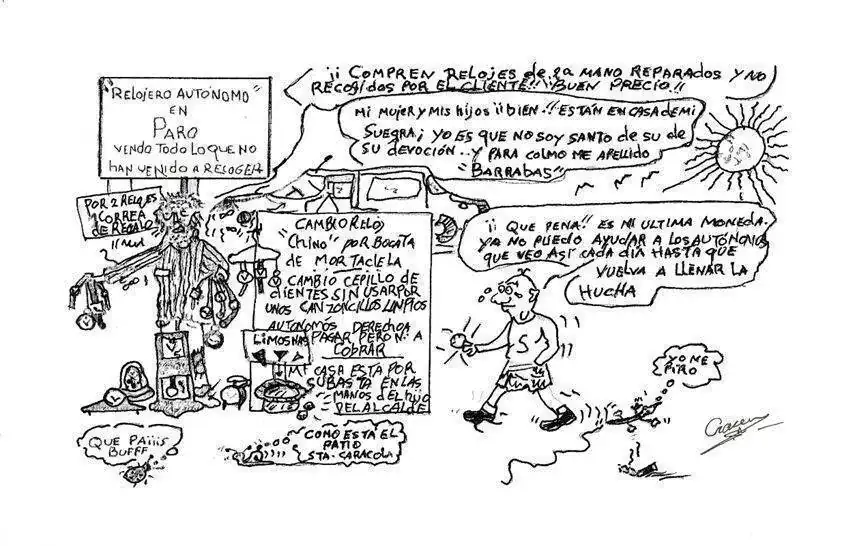 ¡¡ COMPREN RELOJES de 2a MANO REPARADOS Y NO
RECOGIDOS POR EL CLIENTE!! ¡¡BUEN PRECIO!!
"RELOJERO AUTÓNOMO"
EN
PARO
VENDO TODO LO QUE NO
HAN VENIDO A RELOGER
MI MUJER Y MIS HIJOS ¡¡BIEN!! ESTÁN EN CASA DE MI
SUEGRA; YO ES QUE NO SOY SANTO DE SU DE
SU DEVOCIÓN... Y PARA COLMO ME APELLIDO
"BARRABAS"
POR 2 RELOJES
CORREA
DE REGALO
CAMBIO RELOJ
"CHINO" POR BOCATA
DE MORTADELA
CAMBIO CEPILLO DE
DIENTES SIN USAR POR
UNOS CANZONCILLOS LIMPIOS
AUTONOMÓS DERECHO A
PAGAR PERO NI A
COBRAR
LIMOSNAS
MI CASA ESTA POR
SUBASTA EN LAS
MANOS DEL HIJO
DEL ALCALDE
¡¡ QUE PENA!! ES MI ULTIMA MONEDA.
YA NO PUEDO AYUDAR A LOS AUTÓNOMOS
QUE VEO ASÍ CADA DÍA HASTA QUE
VUELVA A LLENAR LA
HUCHA
S
YO ME
PIRO
QUE PAIIIS
BUFFF
COMO ESTÁ EL
PATIO
STA. CARACOLA